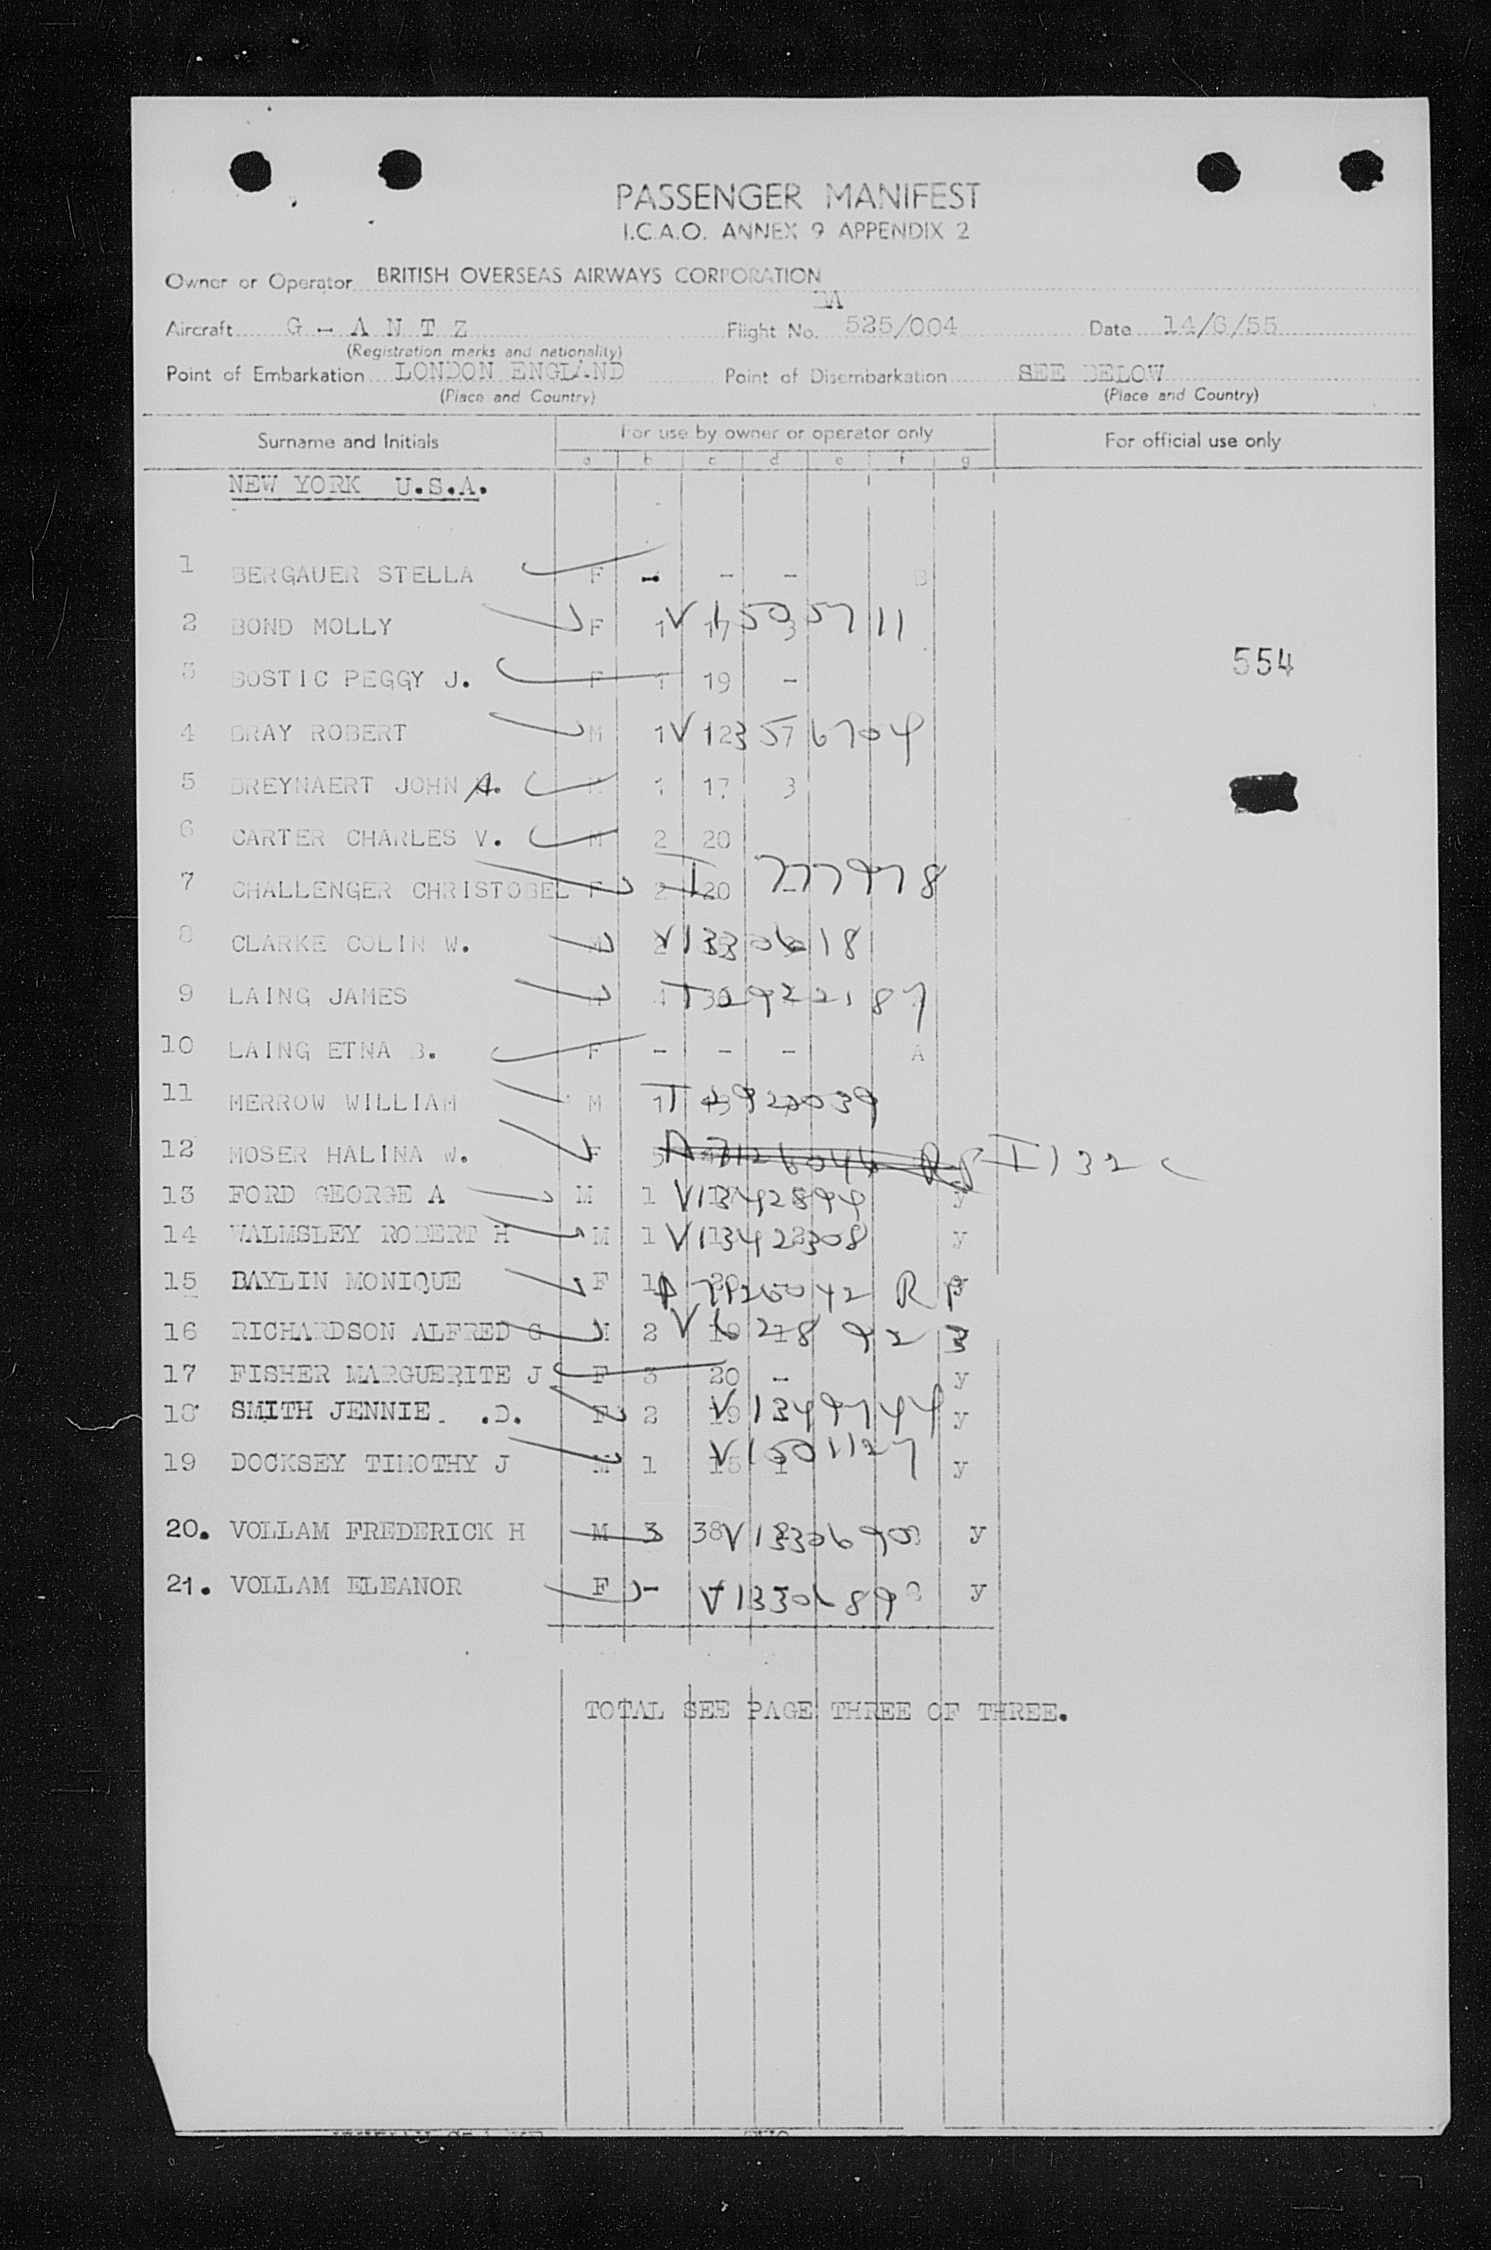 PASSENGER MANIFEST
I.C.A.O. ANNEX 9 APPENDIX 2
Owner or Operator BRITISH OVERSEAS AIRWAYS CORPORATION
Aircraft G - A N T Z Flight No. 525/004 Date 14/6/55
(Registration marks and nationality)
Point of Embarkation LONDON ENGLAND Point of Disembarkation SEE BELOW
(Place and Country) (Place and Country)
Surname and Initials For use by owner or operator only For official use only
a b c d e f g
NEW YORK U.S.A.
1 BERGAUER STELLA F - - - B
2 BOND MOLLY F 1 17 3 V1505711
554
3 BOSTIC PEGGY J. F 1 19 -
4 BRAY ROBERT M 1 V12356704
5 BREYNAERT JOHN A. M 1 17 3
6 CARTER CHARLES V. M 2 20
7 CHALLENGER CHRISTOBEL F 2 20 - T 777978
8 CLARKE COLIN W. M V1330618
9 LAING JAMES 4 T2922187
10 LAING ETNA B. F - - - A
11 MERROW WILLIAM M 1 T2922039
12 MOSER HALINA W. F 5 A7126046 RP I132c
13 FORD GEORGE A M 1 V1342894 y
14 WALMSLEY ROBERT H M 1 V13422308 y
15 BAYLIN MONIQUE F 1 A7126042 RP
16 RICHARDSON ALFRED G M 2 19
17 FISHER MARGUERITE J F 3 20 - y
18 SMITH JENNIE .D. F 2 19 V1349744 y
19 DOCKSEY TIMOTHY J M 1 15 1 V1501127 y
20. VOLLAM FREDERICK H M 3 38 V1330690 y
21. VOLLAM ELEANOR F - V1330689 y
TOTAL SEE PAGE THREE OF THREE.